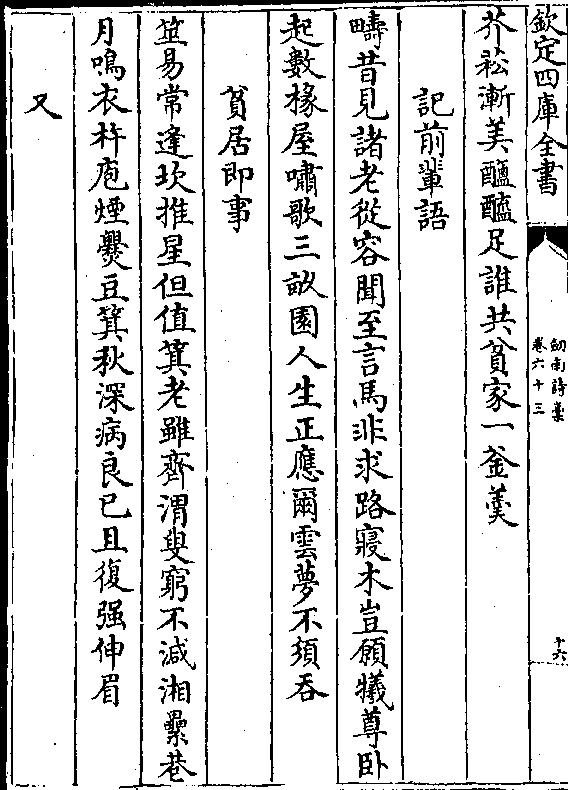 欽定四庫全書
劒南詩藁
卷六十三
十六
芥菘漸美醯醢足誰共貧家一釜羮
記前輩語
疇昔見諸老從容聞至言馬非求路寢木豈願犧尊卧
起數椽屋嘯歌三畝園人生正應爾雲夢不須吞
貧居即事
筮易常逢坎推星但值箕老雖齊渭叟窮不減湘纍巷
月鳴衣杵庖煙爨豆箕秋深病良已且復强伸眉
又